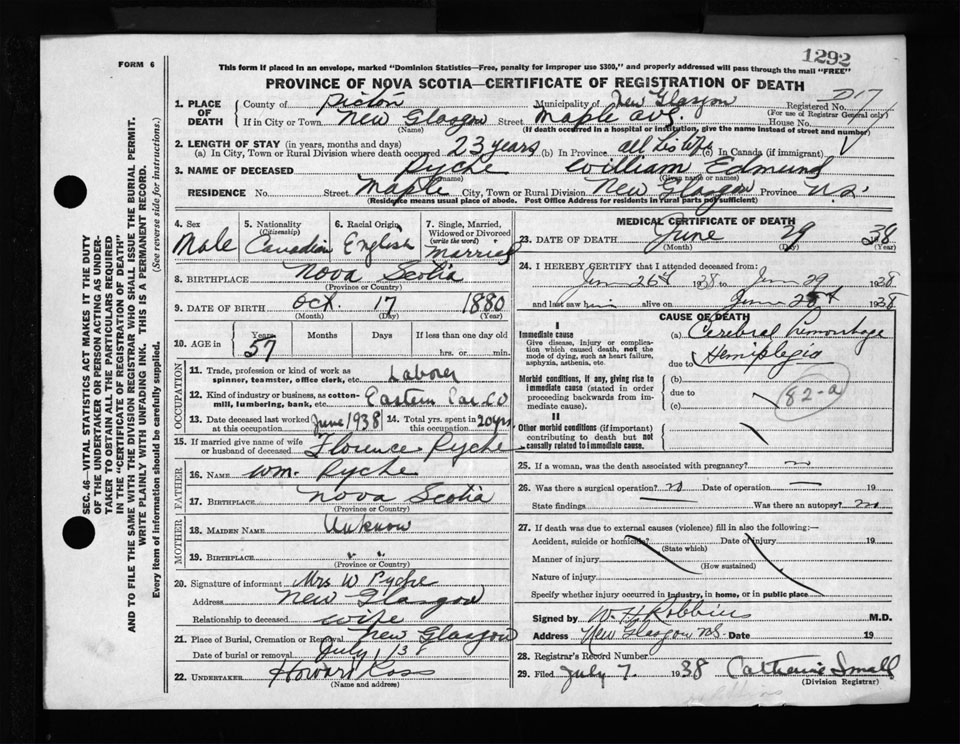 1292
FORM 6
This form if placed in an envelope, marked "Dominion Statistics—Free, penalty for improper use $300," and properly addressed will pass through the mail "FREE"
PROVINCE OF NOVA SCOTIA—CERTIFICATE OF REGISTRATION OF DEATH
1. PLACE OF DEATH County of Pictou Municipality of New Glasgow Registered No. D17
(For use of Registrar General only)
If in City or Town New Glasgow Street Maple ave. House No.
(Name) (If death occurred in a hospital or institution, give the name instead of street and number)
2. LENGTH OF STAY (in years, months and days)
(a) In City, Town or Rural Division where death occurred 23 years (b) In Province all his life (c) In Canada (if immigrant)
3. NAME OF DECEASED Pyche William Edmund
(Surname) (Given name or names)
RESIDENCE No. Street Maple City, Town or Rural Division New Glasgow Province N.S.
(Residence means usual place of abode. Post Office Address for residents in rural parts not sufficient)
4. Sex Male
5. Nationality (Citizenship) Canadian
6. Racial Origin English
7. Single, Married, Widowed or Divorced (write the word) Married
8. BIRTHPLACE Nova Scotia
(Province or Country)
9. DATE OF BIRTH Oct. 17 1880
(Month) (Day) (Year)
10. AGE in Years 57 Months Days If less than one day old
hrs. or min.
OCCUPATION
11. Trade, profession or kind of work as spinner, teamster, office clerk, etc. Laborer
12. Kind of industry or business, as cotton-mill, lumbering, bank, etc. Eastern Car Co
13. Date deceased last worked at this occupation June 1938
14. Total yrs. spent in this occupation 20 yrs.
15. If married give name of wife or husband of deceased Florence Pyche
FATHER
16. NAME Wm. Pyche
17. BIRTHPLACE Nova Scotia
(Province or Country)
MOTHER
18. MAIDEN NAME Unknow
19. BIRTHPLACE " "
(Province or Country)
20. Signature of informant Mrs W Pyche
Address New Glasgow
Relationship to deceased wife
21. Place of Burial, Cremation or Removal New Glasgow
Date of burial or removal July 1 38
22. UNDERTAKER Howard Ross
(Name and address)
MEDICAL CERTIFICATE OF DEATH
23. DATE OF DEATH June 29 38
(Month) (Day) (Year)
24. I HEREBY CERTIFY that I attended deceased from:
June 26th 1938 to June 29 1938
and last saw him alive on June 1938
CAUSE OF DEATH
I
Immediate cause
Give disease, injury or complication which caused death, not the mode of dying, such as heart failure, asphyxia, asthenia, etc.
(a) Cerebral Hemorrhage
due to Hemiplegia
Morbid conditions, if any, giving rise to immediate cause (stated in order proceeding backwards from immediate cause).
(b)
due to
(c)
82-a
II
Other morbid conditions (if important) contributing to death but not causally related to immediate cause.
25. If a woman, was the death associated with pregnancy?
26. Was there a surgical operation? no Date of operation 19
State findings Was there an autopsy? no
27. If death was due to external causes (violence) fill in also the following:—
Accident, suicide or homicide? Date of injury 19
(State which)
Manner of injury
(How sustained)
Nature of injury
Specify whether injury occurred in industry, in home, or in public place
Signed by W. H. Robbins M.D.
Address New Glasgow N.S. Date 19
28. Registrar's Record Number
29. Filed July 7 1938 Catherine Small
(Division Registrar)
SEC. 46—VITAL STATISTICS ACT MAKES IT THE DUTY
OF THE UNDERTAKER OR PERSON ACTING AS UNDER-
TAKER TO OBTAIN ALL THE PARTICULARS REQUIRED
IN THE "CERTIFICATE OF REGISTRATION OF DEATH"
AND TO FILE THE SAME WITH THE DIVISION REGISTRAR WHO SHALL ISSUE THE BURIAL PERMIT.
WRITE PLAINLY WITH UNFADING INK. THIS IS A PERMANENT RECORD.
Every item of information should be carefully supplied. (See reverse side for instructions.)